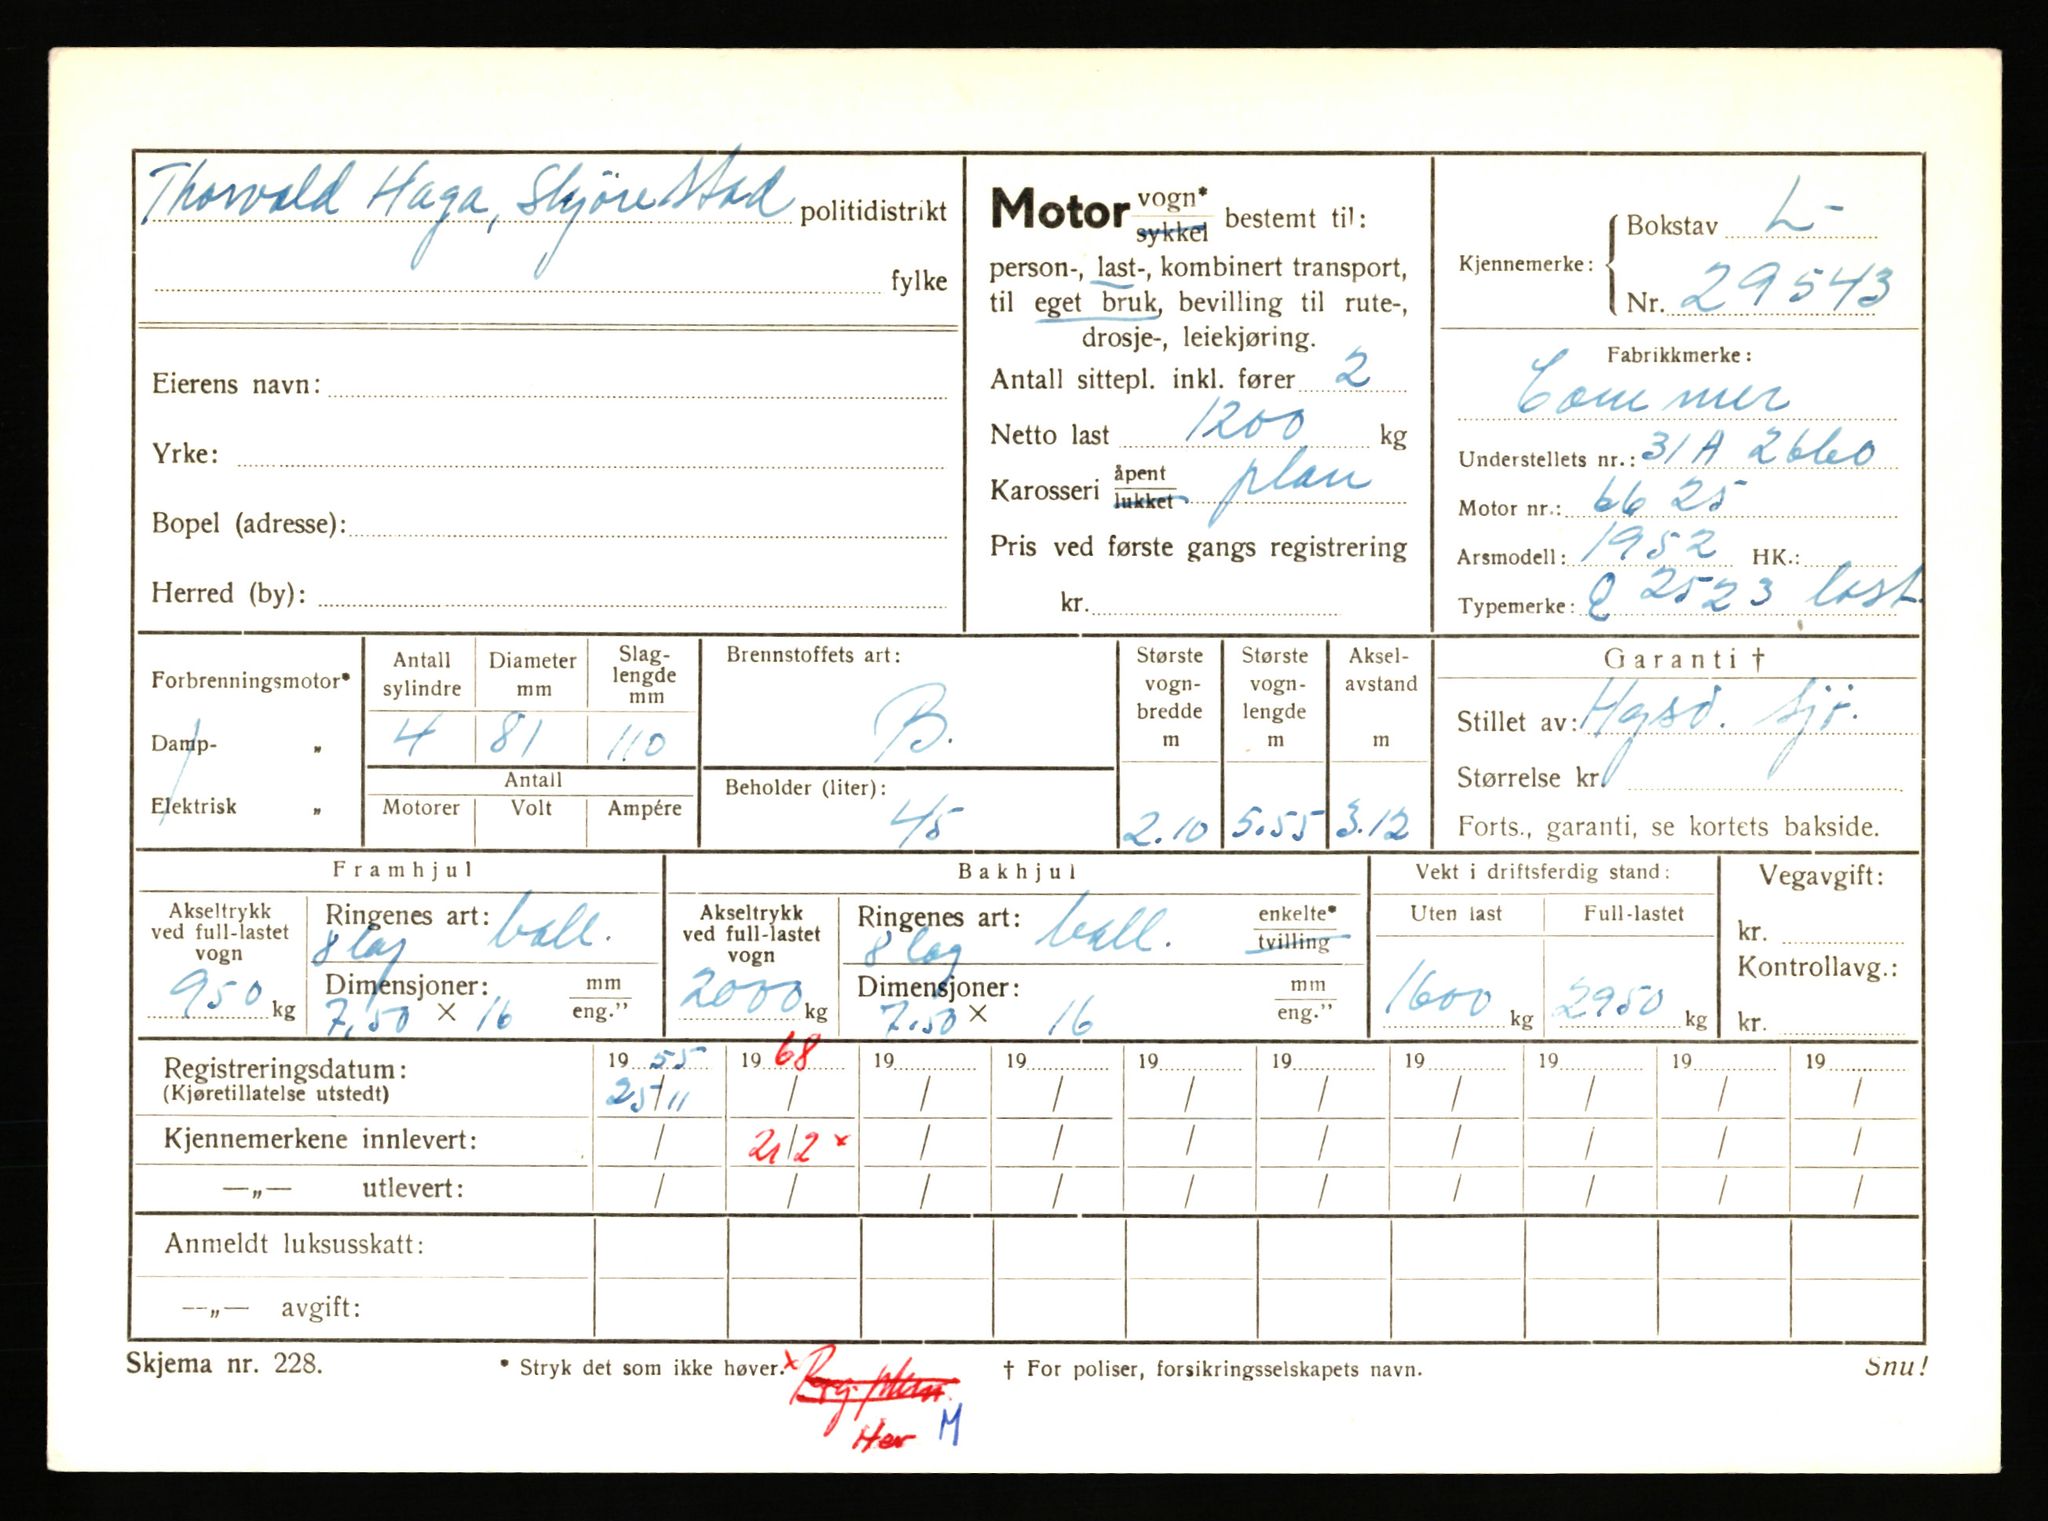 Thorvald Haga, Skjørestad politidistrikt
fylke
Eierens navn:
Yrke:
Bopel (adresse):
Herred (by):
Motor vogn* sykkel bestemt til:
person-, last-, kombinert transport,
til eget bruk, bevilling til rute-,
drosje-, leiekjøring.
Antall sittepl. inkl. fører 2
Netto last 1200 kg
Karosseri åpent lukket plan
Pris ved første gangs registrering
kr.
Kjennemerke: Bokstav L-
Nr. 29543
Fabrikkmerke:
Commer
Understellets nr.: 31A 2660
Motor nr.: 6625
Arsmodell: 1952 HK.:
Typemerke: Q 2523 last.
Forbrenningsmotor*
Damp- „
Elektrisk „
Antall sylindre Diameter mm Slag-lengde mm
4 81 110
Antall
Motorer Volt Ampére
Brennstoffets art:
B.
Beholder (liter):
45
Største vogn-bredde m
2.10
Største vogn-lengde m
5.55
Aksel-avstand m
3.12
Garanti †
Stillet av: Hgsd. sjø.
Størrelse kr.
Forts., garanti, se kortets bakside.
Framhjul
Akseltrykk ved full-lastet vogn
950 kg
Ringenes art: ball.
8 lag
Dimensjoner: mm
7,50 × 16 eng.”
Bakhjul
Akseltrykk ved full-lastet vogn
2000 kg
Ringenes art: ball. enkelte*
8 lag tvilling
Dimensjoner: mm
7.50 × 16 eng.”
Vekt i driftsferdig stand:
Uten last Full-lastet
1600 kg 2950 kg
Vegavgift:
kr.
Kontrollavg.:
kr.
Registreringsdatum: 19 55 19 68 19 19 19 19 19 19 19 19
(Kjøretillatelse utstedt) 25/11 / / / / / / / / /
Kjennemerkene innlevert: / 21/2 × / / / / / / / /
—„— utlevert: / / / / / / / / / /
Anmeldt luksusskatt:
—„— avgift:
Skjema nr. 228. * Stryk det som ikke høver. × † For poliser, forsikringsselskapets navn. Snu!
Her M